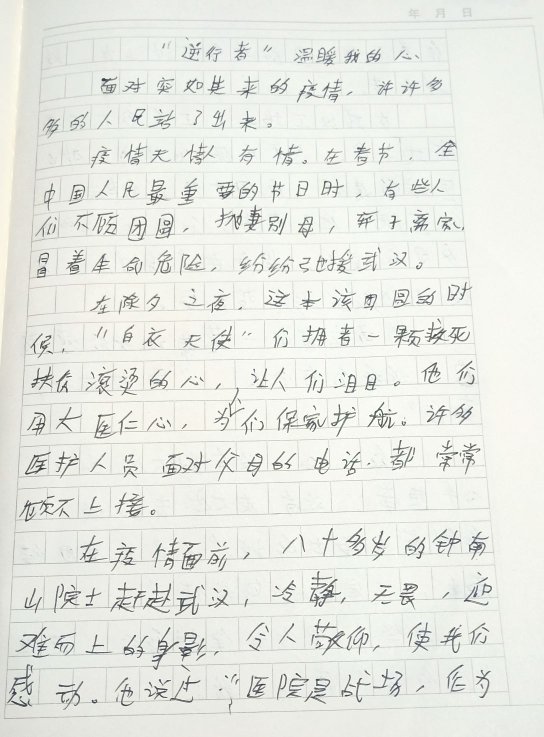 年 月 日
“逆行者”温暖我的心
面对突如其来的疫情，许许多
多的人民站了出来。
疫情无情人有情。在春节，全
中国人民最重要的节日时，有些人
们不顾团圆，抛妻别母，弃子离家，
冒着生命危险，纷纷驰援武汉。
在除夕之夜，这本该团圆的时
候，“白衣天使”们拥着一颗救死
扶伤滚烫的心，让人们泪目。他们
用大医仁心，为们保家护航。许多
医护人员面对父母的电话，都常常
顾不上接。
在疫情面前，八十多岁的钟南
山院士赶赴武汉，冷静，无畏，迎
难而上的身影，令人敬仰，使我们
感动。他说过：“医院是战场，作为